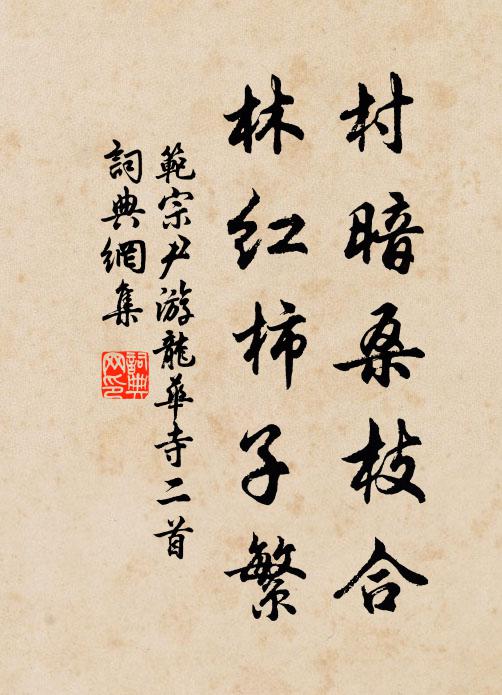 村暗桑枝合
林红柿子繁
範宗尹游龍華寺二首
詞典網集
詞典
网印